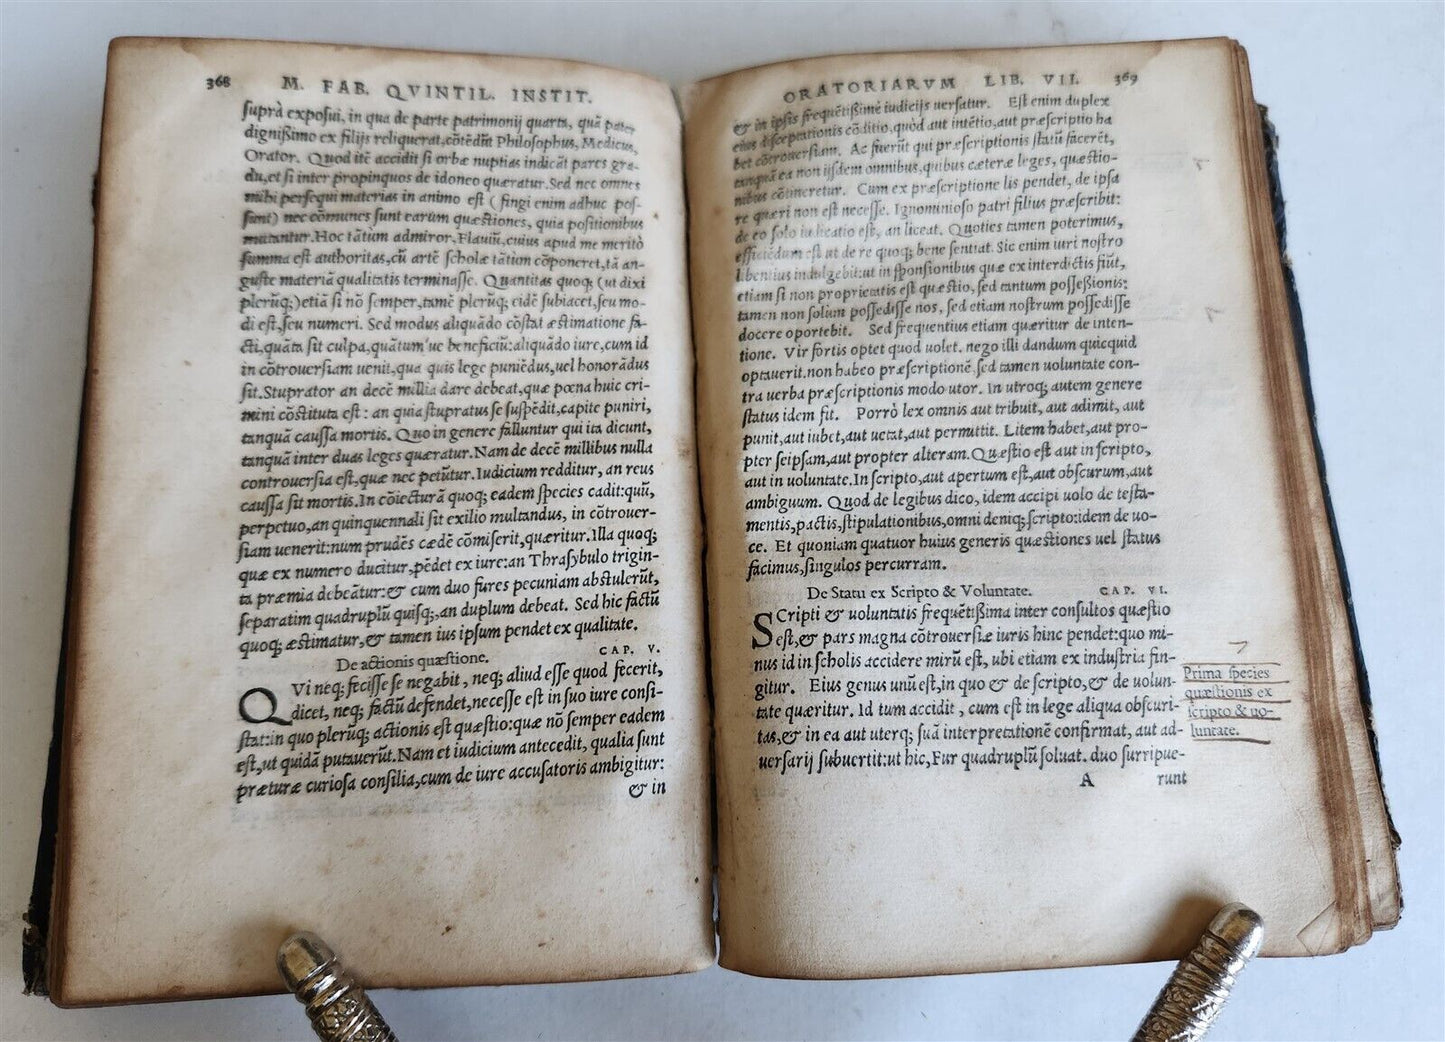 368 M. FAB. QVINTIL. INSTIT.
suprà exposui, in qua de parte patrimonij quarta, quã pater
dignißimo ex filijs reliquerat, cõtẽdũt Philosophus, Medicus,
Orator. Quod itẽ accidit si orbæ nuptias indicãt pares gra-
du, et si inter propinquos de idoneo quæratur. Sed nec omnes
mihi persequi materias in animo est ( fingi enim adhuc pos-
sunt) nec cõmunes sunt earum quæstiones, quia positionibus
mutantur. Hoc tãtum admiror, Flauiũ, cuius apud me meritò
summa est authoritas, cũ artẽ scholæ tãtim cõponeret, tã an-
guste materiã qualitatis terminasse. Quantitas quoq; (ut dixi
plerũq;) etiã si nõ semper, tamẽ plerũq; eidẽ subiacet, seu mo-
di est, seu numeri. Sed modus aliquãdo cõstat æstimatione fa-
cti, quãta sit culpa, quãtum'ue beneficiũ: aliquãdo iure, cum id
in cõtrouersiam uenit, qua quis lege puniẽdus, uel honorãdus
sit. Stuprator an decẽ millia dare debeat, quæ pœna huic cri-
mini cõstituta est : an quia stupratus se suspẽdit, capite puniri,
tanquã caussa mortis. Quo in genere falluntur qui ita dicunt,
tanquã inter duas leges quæratur. Nam de decẽ millibus nulla
controuersia est, quæ nec petũtur. Iudicium redditur, an reus
caussa sit mortis. In cõiecturã quoq; eadem species cadit: quũ,
perpetuo, an quinquennali sit exilio multandus, in cõtrouer-
siam uenerit: num prudẽs cædẽ cõmiserit, quæritur. Illa quoq;
quæ ex numero ducitur, pẽdet ex iure: an Thrasybulo trigin-
ta præmia debeãtur: & cum duo fures pecuniam abstulerũt,
separatim quadruplũ quisq;, an duplum debeat. Sed hic factũ
quoq; æstimatur, & tamen ius ipsum pendet ex qualitate.
De actionis quæstione. CAP. V.
QVi neq; fecisse se negabit, neq; aliud esse quod fecerit,
dicet, neq; factũ defendet, necesse est in suo iure consi-
stat: in quo plerũq; actionis est quæstio: quæ nõ semper eadem
est, ut quidã putauerũt. Nam et iudicium antecedit, qualia sunt
præturæ curiosa consilia, cum de iure accusatoris ambigitur:
& in
ORATORIARVM LIB. VII. 369
& in ipsis frequẽtißimè iudicijs uersatur. Est enim duplex
eius disceptationis cõditio, quòd aut intẽtio, aut præscriptio ha
bet cõtrouersiam. Ac fuerũt qui præscriptionis statũ facerẽt,
tanquã ea non ijsdem omnibus, quibus cæteræ leges, quæstio-
nibus cõtineretur. Cum ex præscriptione lis pendet, de ipsa
re quæri non est necesse. Ignominioso patri filius præscribit:
de eo solo iudicatio est, an liceat. Quoties tamen poterimus,
efficiẽdum est ut de re quoq; bene sentiat. Sic enim iuri nostro
libentius indulgebit: ut in sponsionibus quæ ex interdictis fiũt,
etiam si non proprietatis est quæstio, sed tantum possessionis:
tamen non solum possedisse nos, sed etiam nostrum possedisse
docere oportebit. Sed frequentius etiam quæritur de inten-
tione. Vir fortis optet quod uolet. nego illi dandum quicquid
optauerit. non habeo præscriptionẽ, sed tamen uoluntate con-
tra uerba præscriptionis modo utor. In utroq; autem genere
status idem fit. Porrò lex omnis aut tribuit, aut adimit, aut
punit, aut iubet, aut uetat, aut permittit. Litem habet, aut pro-
pter seipsam, aut propter alteram. Quæstio est aut in scripto,
aut in uoluntate. In scripto, aut apertum est, aut obscurum, aut
ambiguum. Quod de legibus dico, idem accipi uolo de testa-
mentis, pactis, stipulationibus, omni deniq; scripto: idem de uo-
ce. Et quoniam quatuor huius generis quæstiones uel status
facimus, singulos percurram.
De Statu ex Scripto & Voluntate. CAP. VI.
SCripti & uoluntatis frequẽtißima inter consultos quæstio
est, & pars magna cõtrouersiæ iuris hinc pendet: quo mi-
nus id in scholis accidere mirũ est, ubi etiam ex industria fin-
gitur. Eius genus unũ est, in quo & de scripto, & de uolun-
tate quæritur. Id tum accidit, cum est in lege aliqua obscuri-
tas, & in ea aut uterq; suã interpretationẽ confirmat, aut ad-
uersarij subuertit: ut hic, Fur quadruplũ soluat. duo surripue-
A runt
Prima species
quæstionis ex
scripto & uo-
luntate.